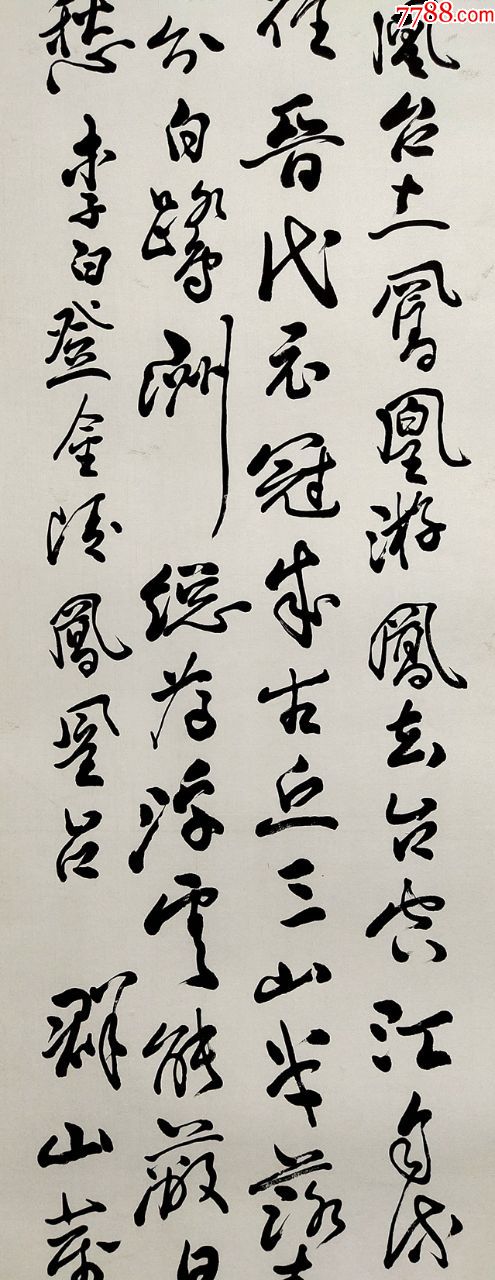 7788.com
凰台上鳳凰游鳳去台空江自流
徑晋代衣冠成古丘三山半落青
分白鹭洲總為浮雲能蔽日
愁 李白登金陵鳳凰台 群山萬